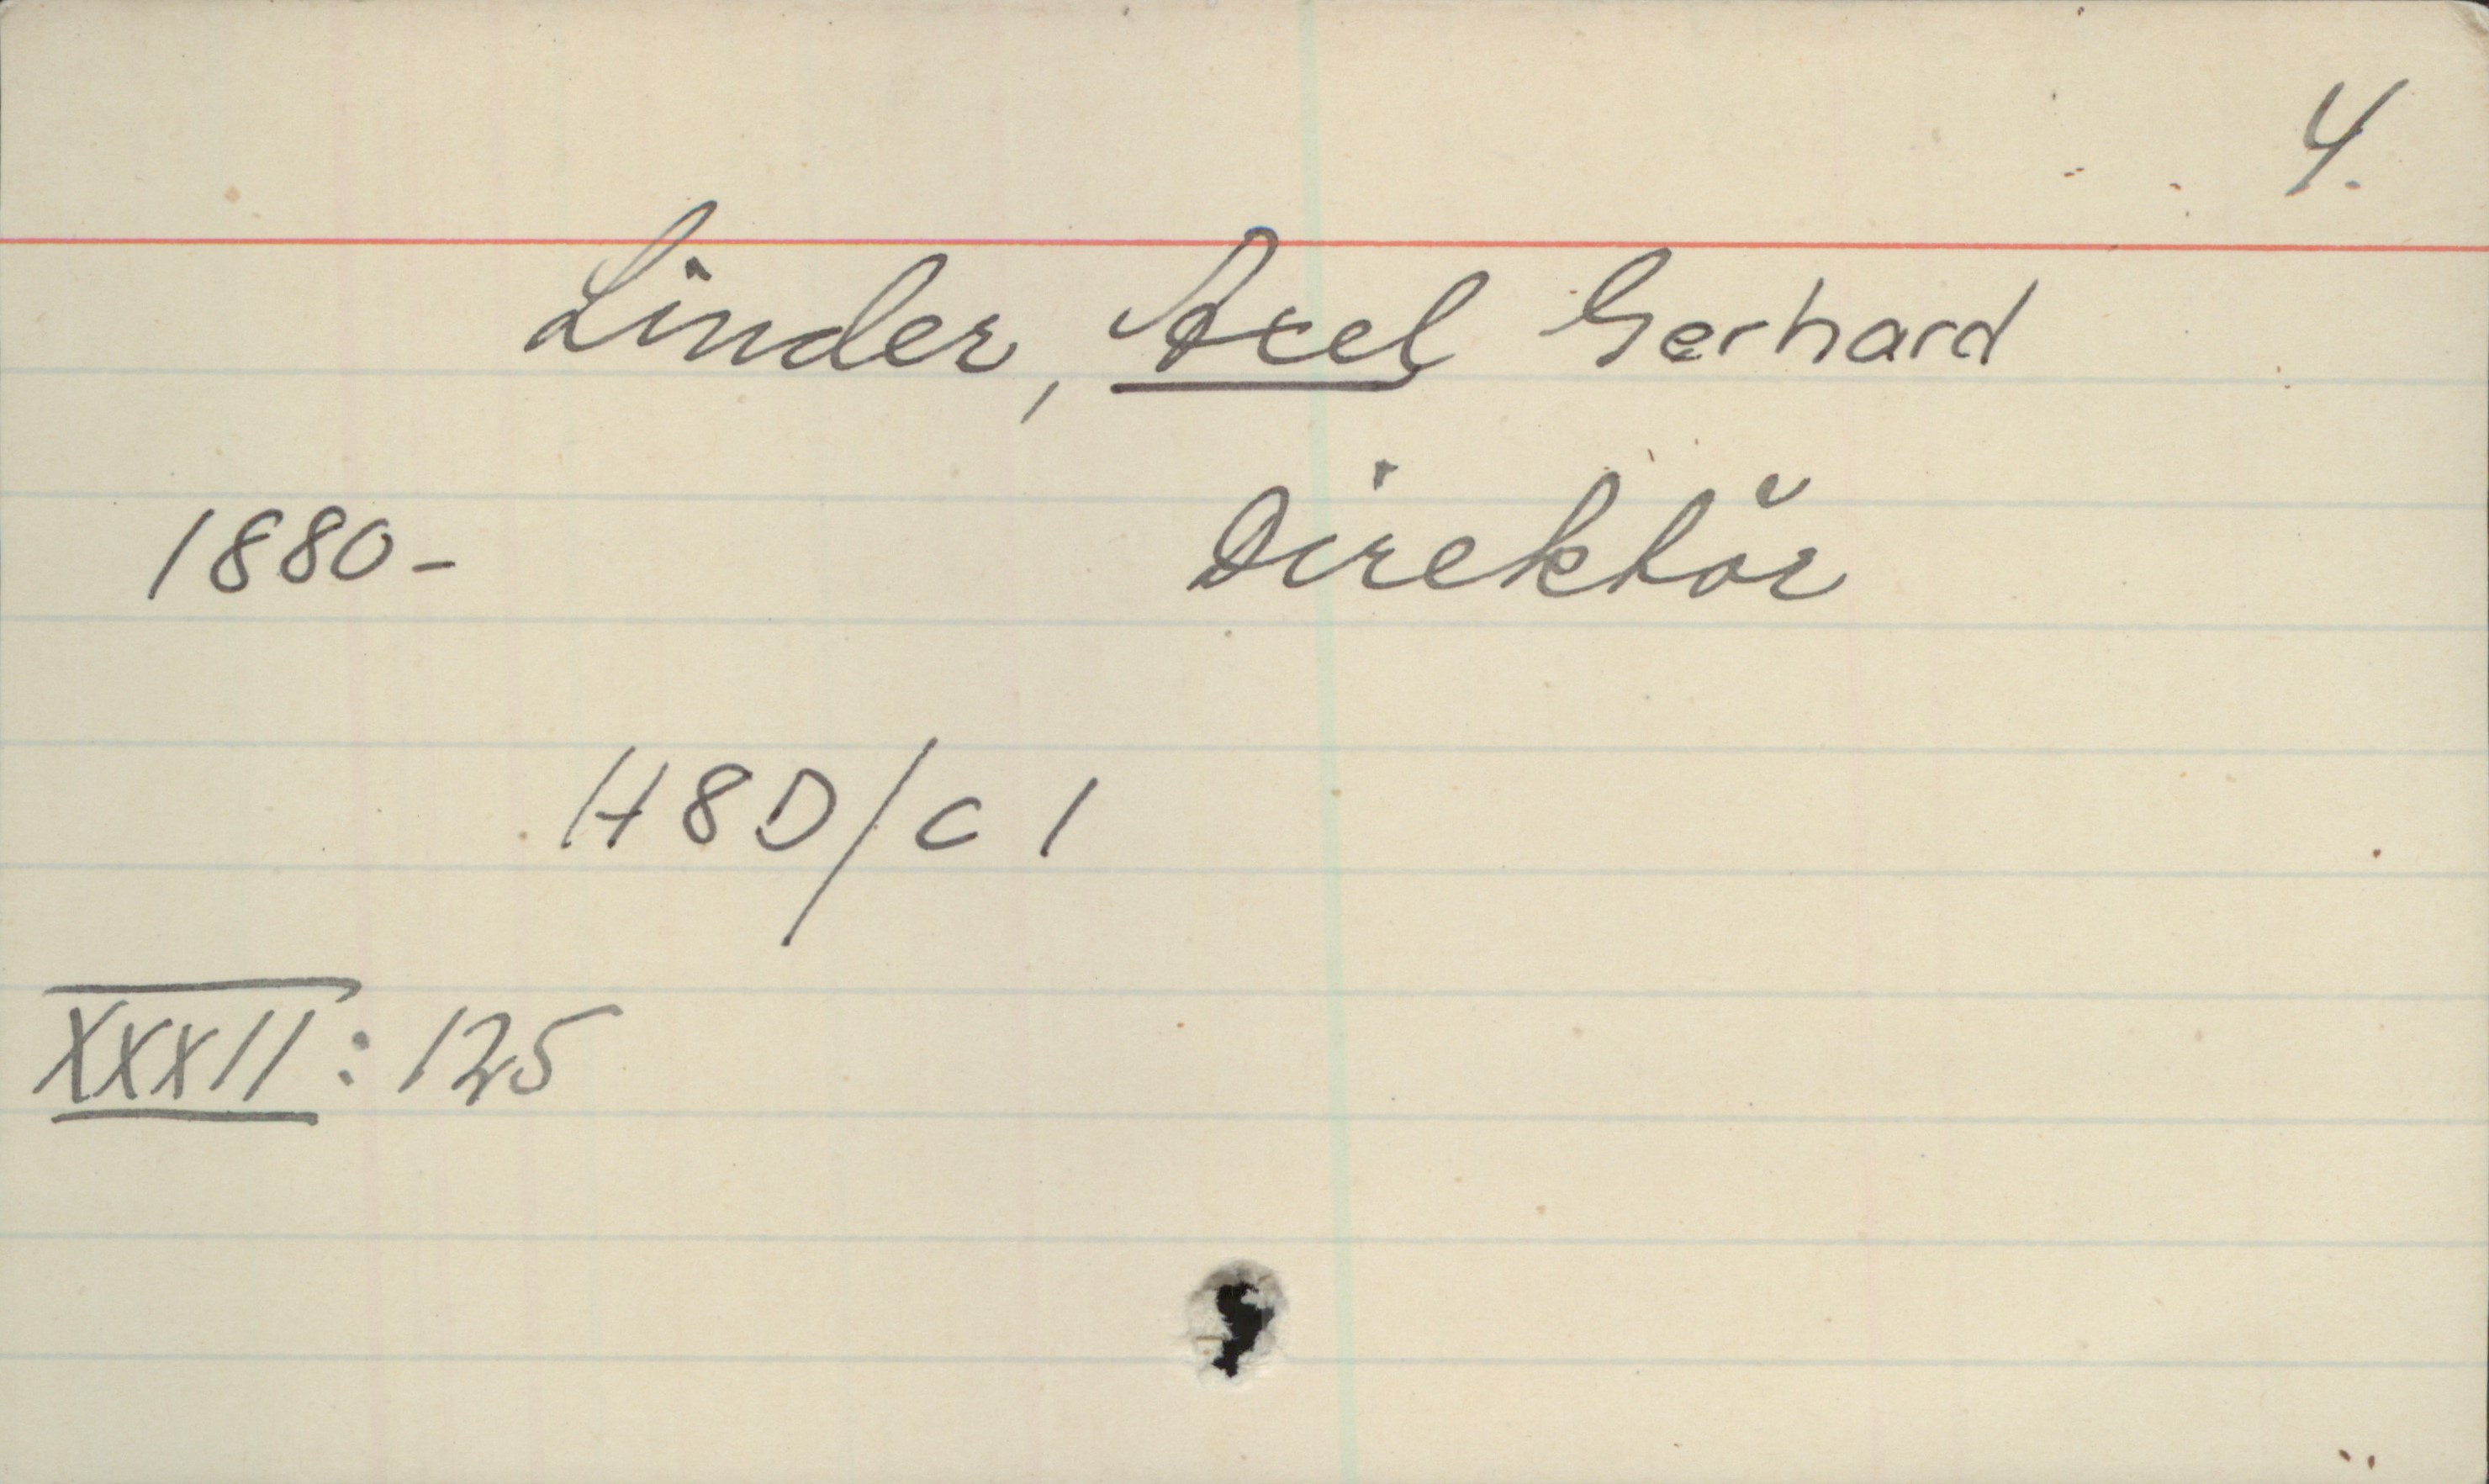 4.
Linder, Axel Gerhard
1880- Direktör
H8D/c 1
XXXII: 125